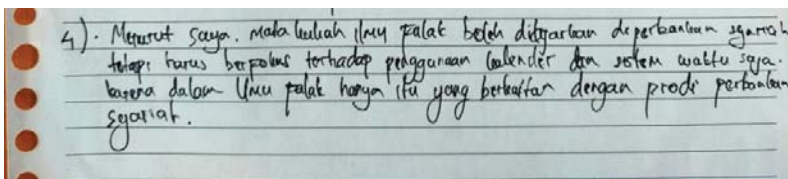 4). Menurut saya. Mata kuliah ilmu falak boleh diajarkan diperbankan syariah
tetapi harus berfokus terhadap penggunaan kalender dan sistem waktu saja.
karena dalam ilmu falak hanya itu yang berkaitan dengan prodi perbankan
syariah.